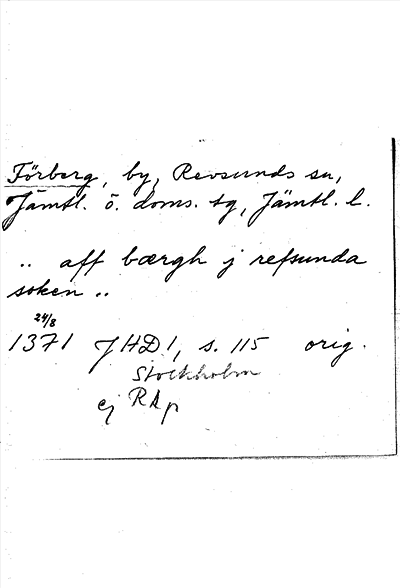 Förberg, by, Revsunds sn,
Jämtl. ö. doms. tg, Jämtl. l.
.. aff bærgh j refsunda
soken ..
24/8
1371 JHD 1, s. 115 orig.
Stockholm
ej RAp